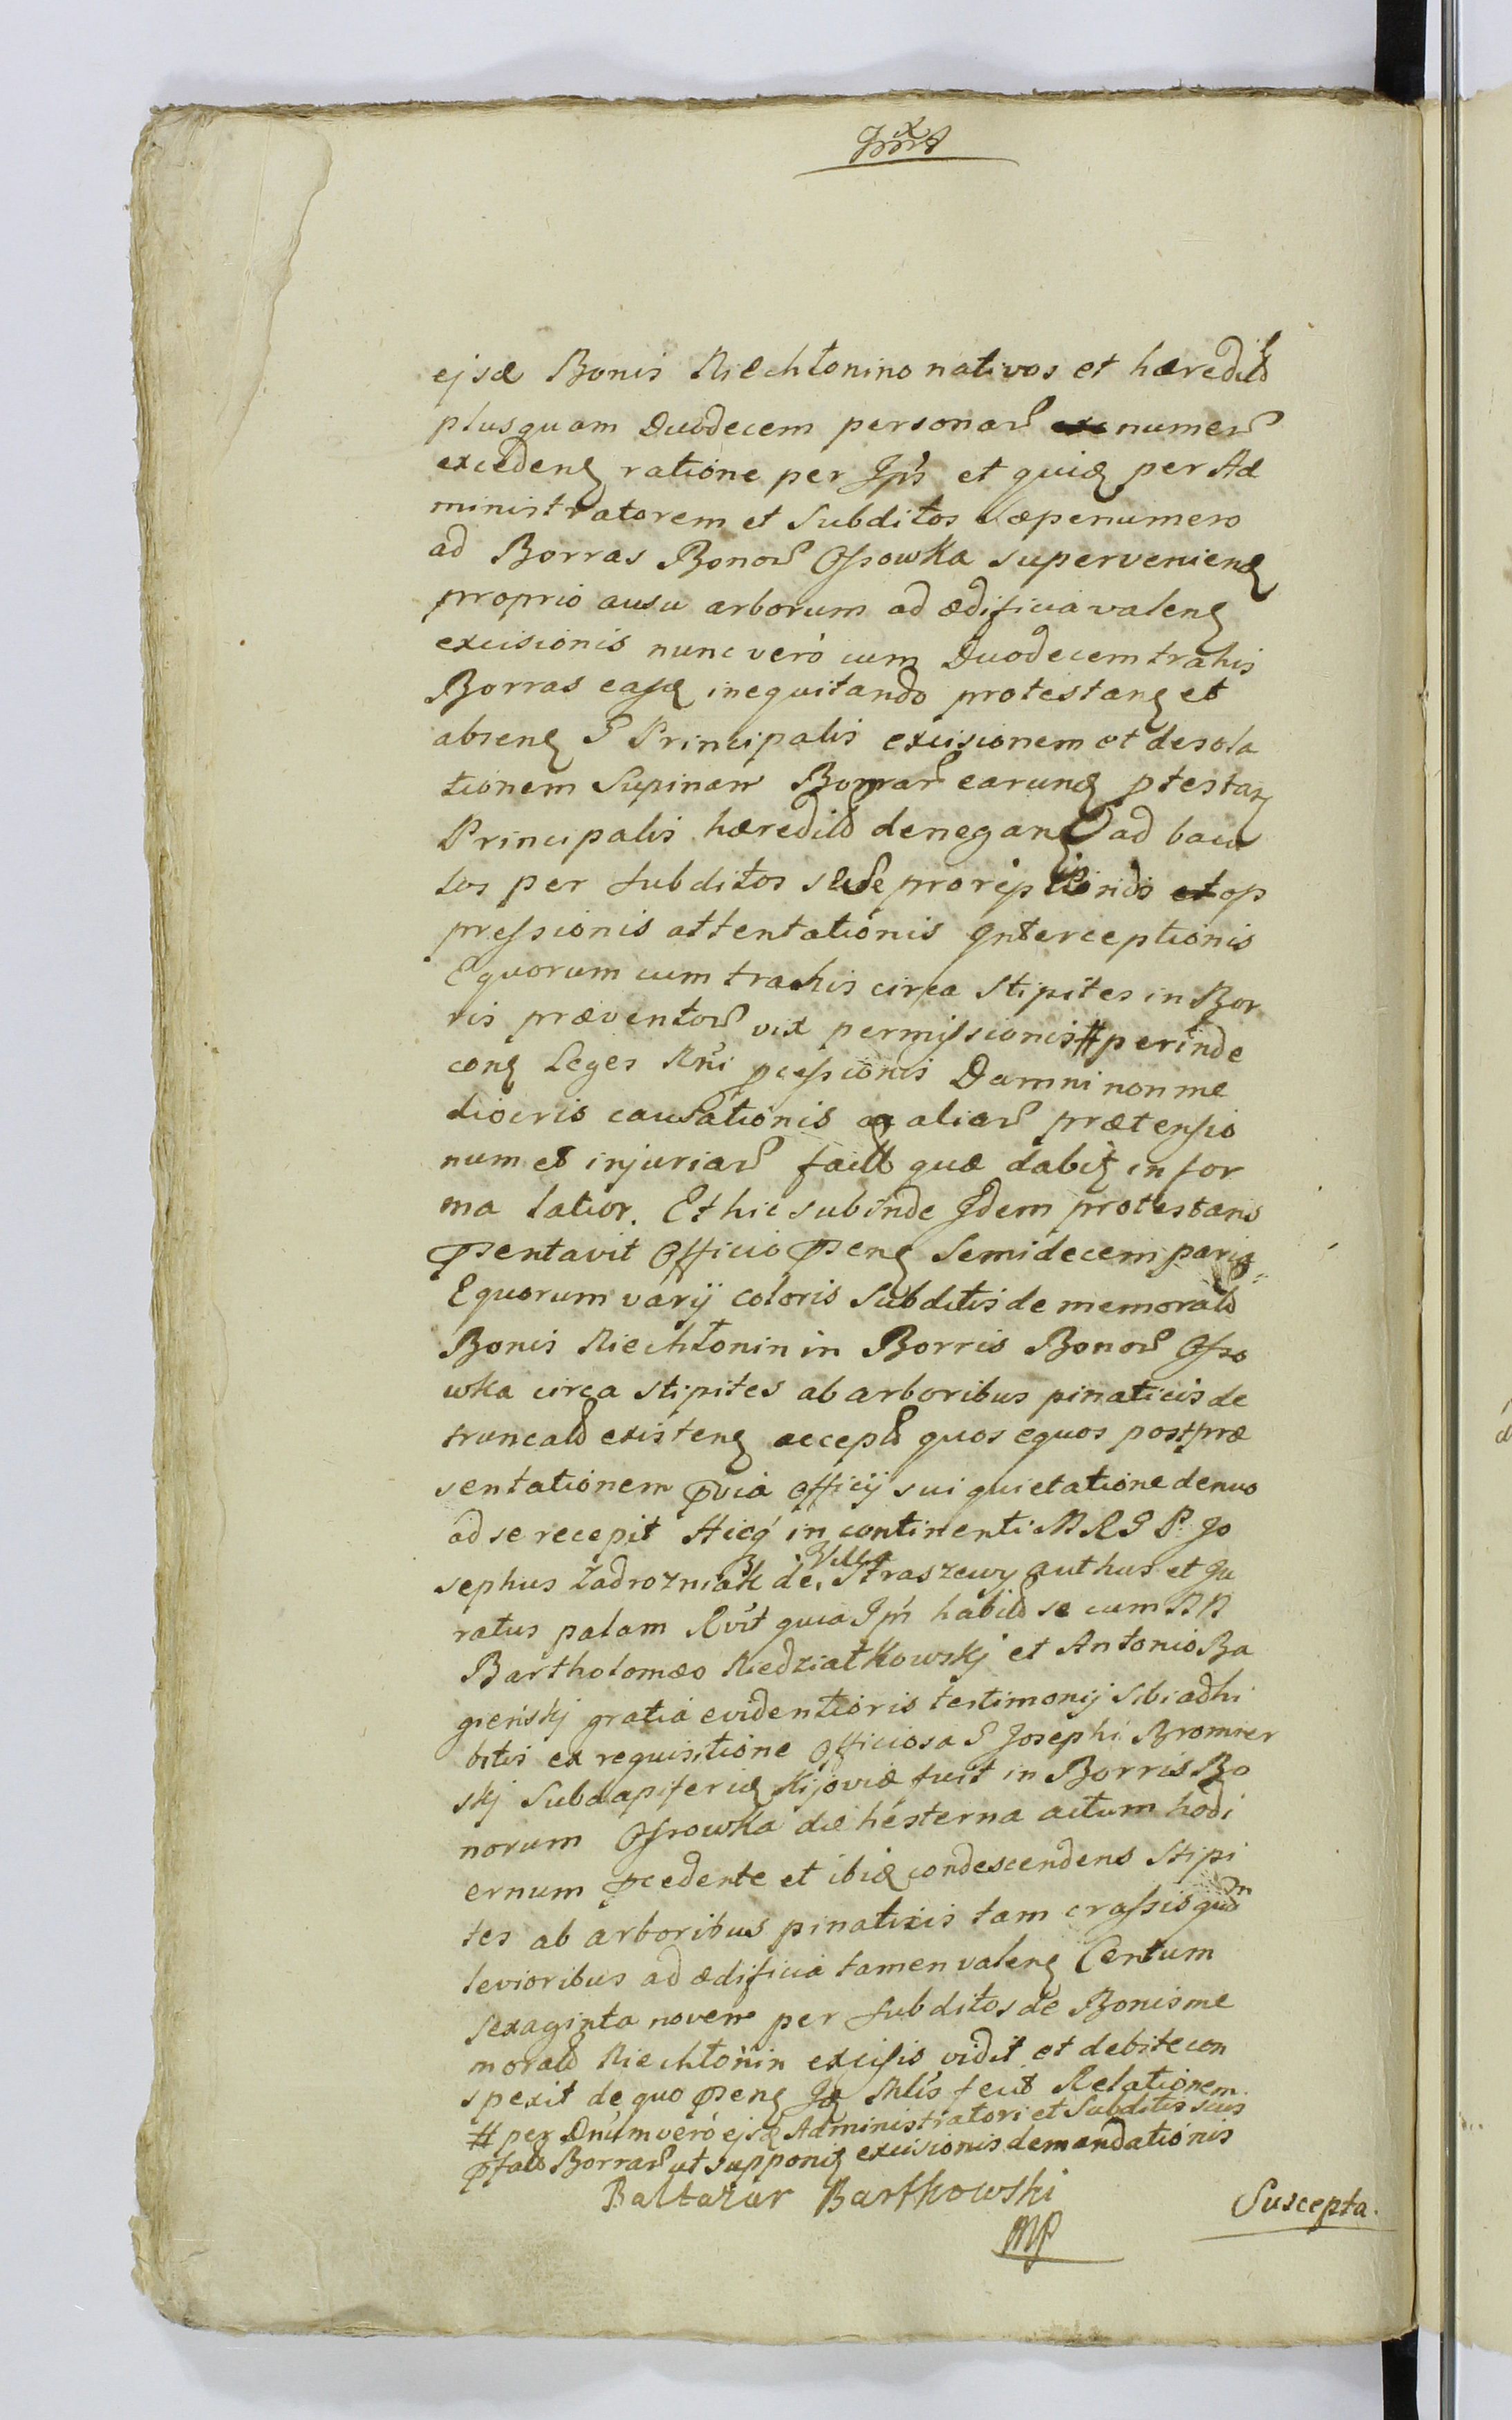 ejsd Bonis Niechłonino nativos et hæredits
plusquam Duodecem personar numer
excedens ratione per Ips et quid per Ad
ministratorem et Subditos Sæpenumero
ad Borras Bonor Ossowka superveniend
proprio ausu arborum ad ædificia valens
excisionis nunc verò cum Duodecem trahis
Borras easd inequitando protestans et
absens G Principalis excisionem et desola
tionem Supinam Borrar earund ptestan
Principalis hæredits denegans ad bacu
los per Subditos prorip et op
pressionis attentationis Interceptionis
Equorum cum trahis circa Stipites in Bor
ris præventor vix permissionis # perinde
cons Leges Rni pcessionis Damni non me
diocris causationis aliar prætensio
num et injuriar facit quæ dabit in for
ma latior. Et hic subinde Idem protestans
psentavit Officio psens Semidecem paria
Equorum varij coloris Subditis de memorats
Bonis Niechłonin in Borris Bonor Osso
wka circa stipites ab arboribus pinaticis de
truncats existens accepts quos equos post præ
sentationem pvia Officij sui quietatione denuo
ad se recepit Hicq in continenti M R G P. Jo
sephus Zadrozniak de Villa Straszewy authus et Ju
ratus palam Rvit quia Ipse habits se cum NN
Bartholomæo Niedziałkowskj et Antonio Ba
gieńskj gratia evidentioris testimonij sibi adhi
bitis ex requisitione Officiosa G Josephi Bromier
skj Subdapiferid Kijoviæ fuit in Borris Bo
norum Ossowka die hesterna actum hodi
ernum pcedente et ibid condescendens Stipi
tes ab arboribus pinaticis tam crassis qudm
levioribus ad ædificia tamen valens Centum
Sexaginta novem per Subditos de Bonis me
morats Niechłonin excisis vidit et debite con
spexit de quo psens Id Mlis fecit Relationem.
# per Dnum verò ejsd Administratori et Subditis suis
pfats Borrar ut supponit excisionis demandationis
Baltazar Bartkowski
MP
Suscepta.